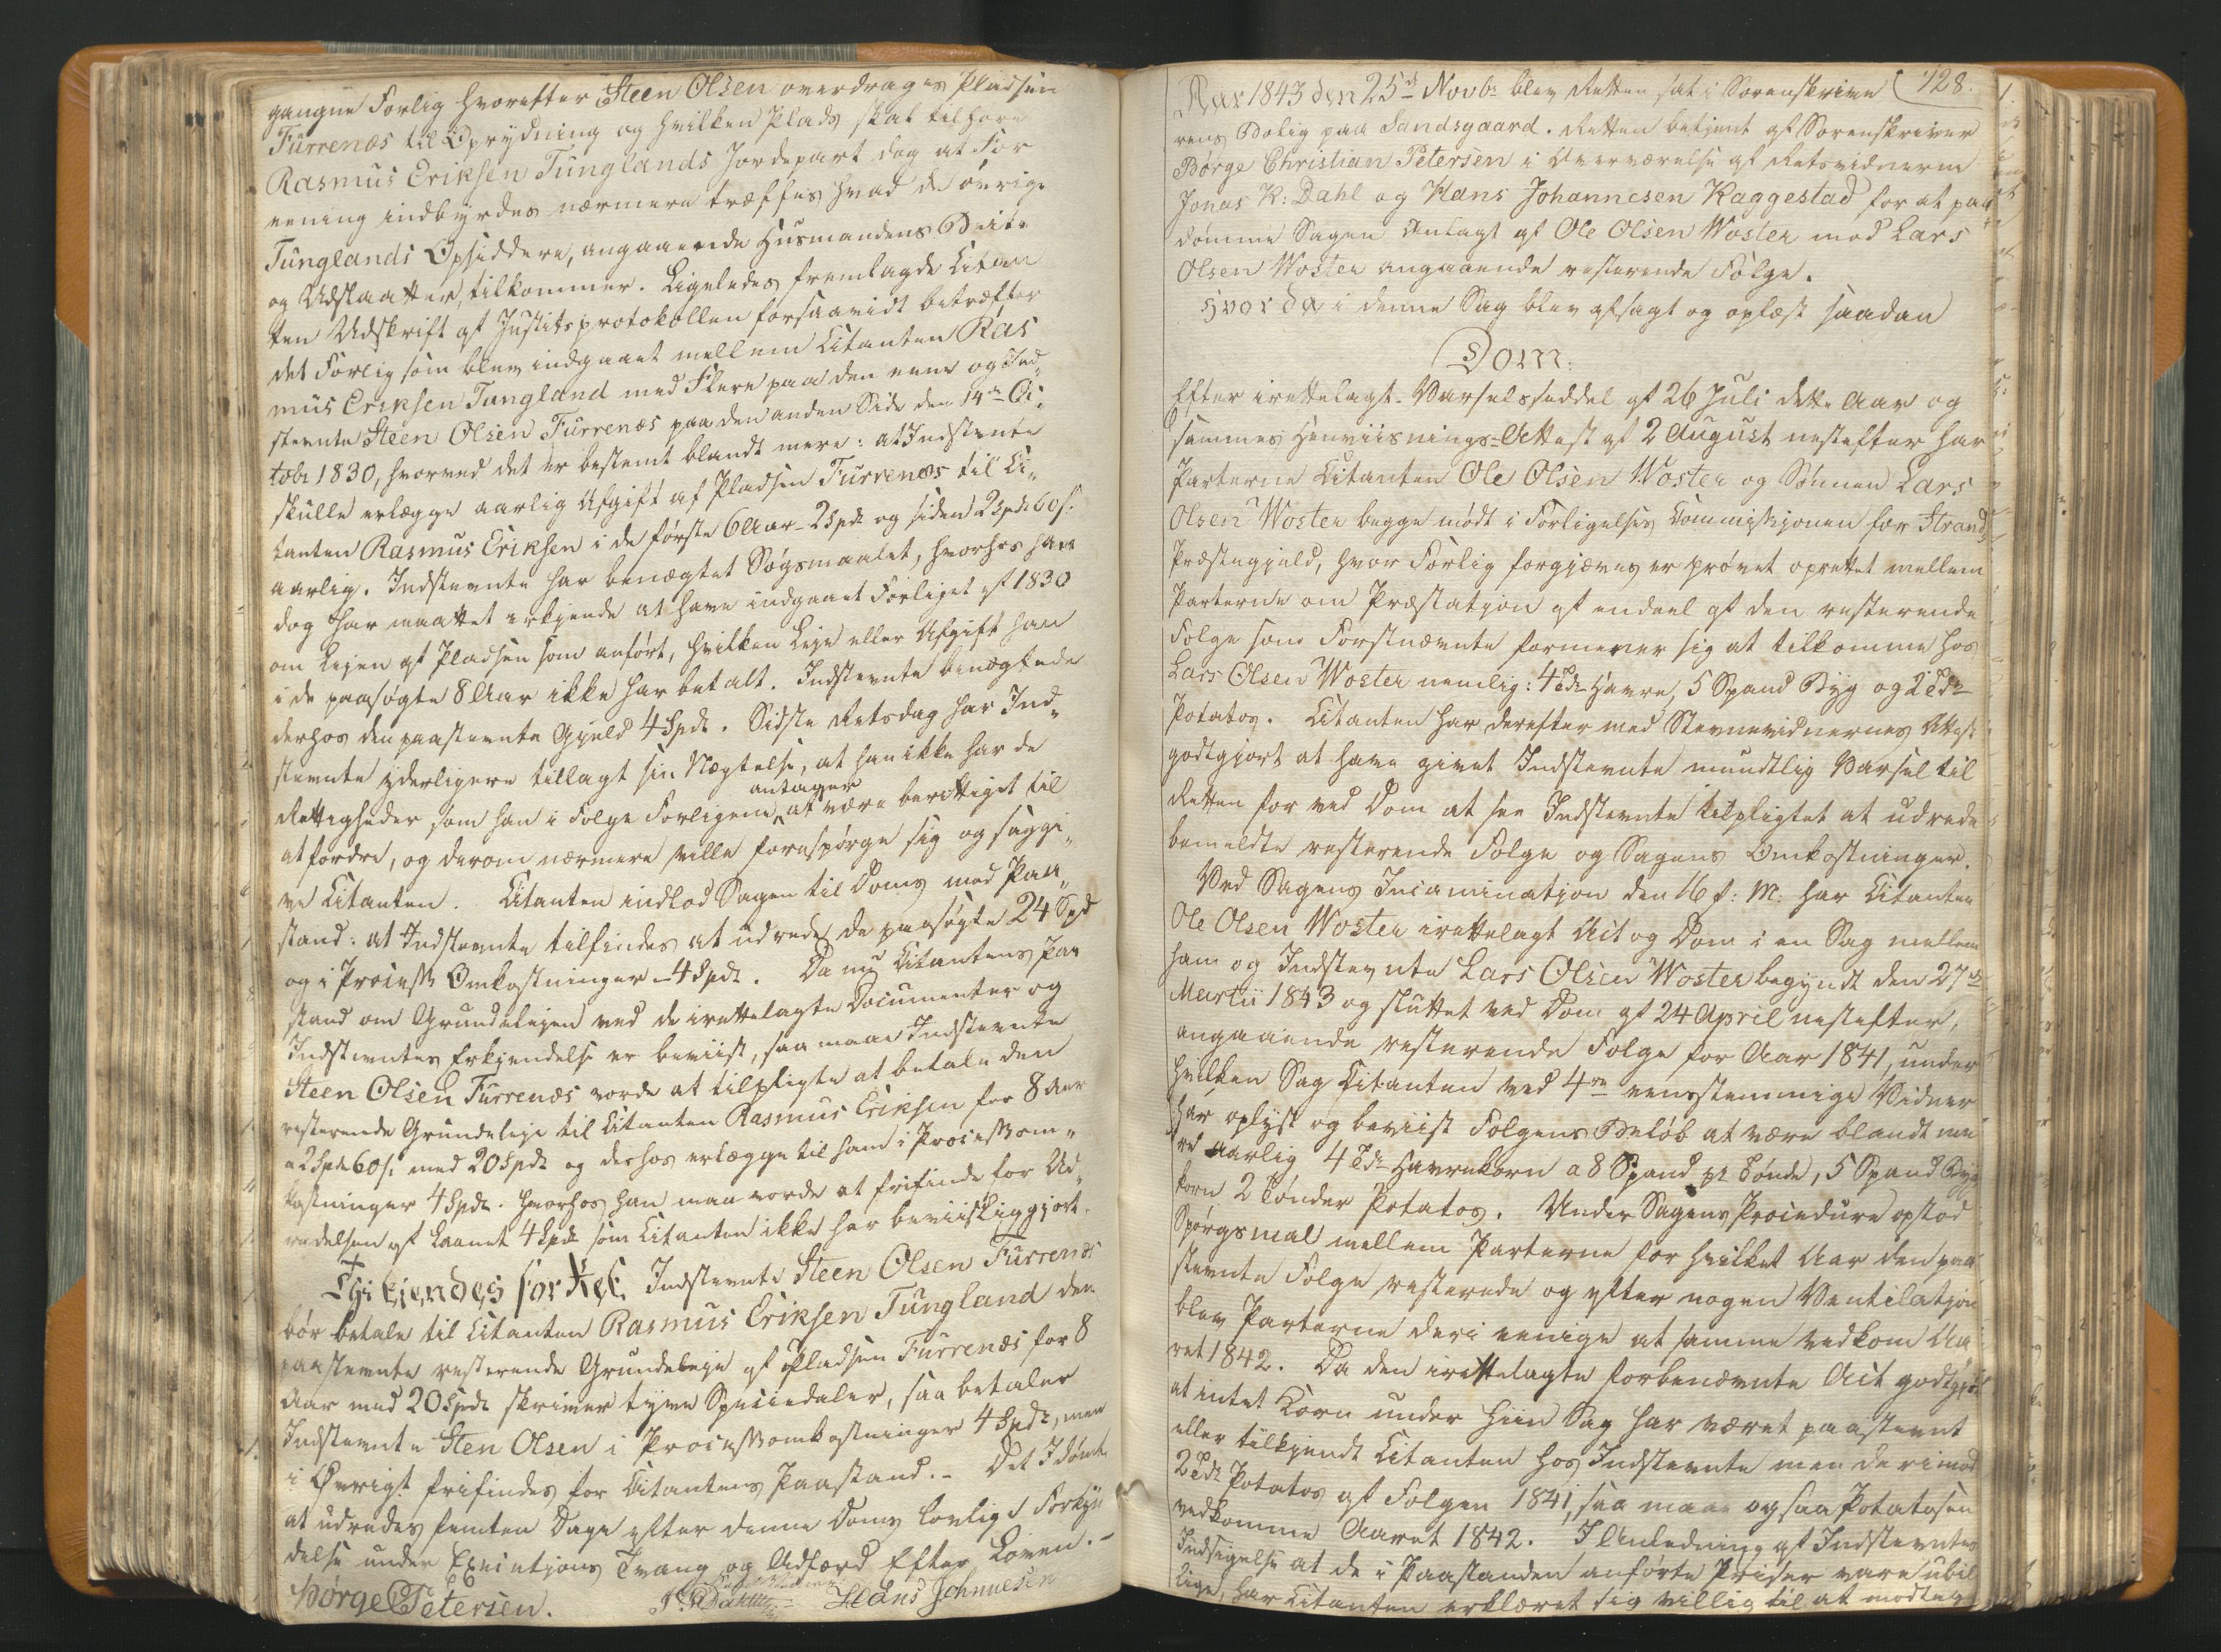 gangne Forlig hvorefter Steen Olsen overdrages Pladsen
Furrenæs til Oprydning og hvilken Plads skal tilhøre
Rasmus Eriksen Tunglands Jordepart dog at For
eening indbyrdes nærmere træffes hvad de øvrige
Tunglands Opsiddere, angaaende Husmandens Beite
og Udslaatter, tilkommer. Ligeledes fremlagde Citan
ten Udskrift af Justitsprotokollen forsaavidt betræffer
det Forlig som blev indgaaet mellem Citanten Ras
mus Eriksen Tungland med Flere paa den eene og Ind„
stevnte Steen Olsen Furrenæs paa den anden Side den 14de Oc„
tobr 1830, hvorved det er bestemt blandt mere: at Indstevnte
skulle erlægge aarlig Afgift af Pladsen Furrenæs til Ci„
tanten Rasmus Eriksen i de første 6 Aar - 2 Spdr og siden 2 Spdr 60 s:
aarlig. Indstevnte har benægtet Søgsmaalet, hvorhos han
dog har maattet erkjende at have indgaaet Forliget af 1830
om Leien af Pladsen som anført, hvilken Leje eller Afgift han
i de paasøgte 8 Aar ikke har betalt. Indstevnte benægtede
derhos den paastevnte Gjeld 4 Spdr. Sidste Retsdag har Ind„
stevnte yderligere tillagt sin Nægtelse, at han ikke har de
Rettigheder som han i Følge Forligene antager at være berettiget til
at fordre, og derom nærmere ville forespørge sig og saggi„
ve Citanten. Citanten indlod Sagen til Doms med Paa„
stand: at Indstevnte tilfindes at udrede de paasøgte 24 Spd
og i Process Omkostninger - 4 Spdr. Da nu Citantens Paa
stand om Grundeleien ved de irettelagte Documenter og
Indstevntes Erkjendelse er beviist, saa maae Indstevnte
Steen Olsen Furrenæs vorde at tilpligte at betale den
resterende Grundeleje til Citanten Rasmus Eriksen for 8 Aar
a 2 Spdr 60 s: med 20 Spdr og derhos erlægge til ham i Processom„
kostninger 4 Spdr. hvorhos han maa vorde at frifinde for Ud„
redelsen af Laanet 4 Spdr som Citanten ikke har beviisliggjort.
Thi kjendes for Ret: Indstevnte Steen Olsen Furrenæs
bør betale til Citanten Rasmus Eriksen Tungland den
paastevnte resterende Grundeleje af Pladsen Furrenæs for 8
Aar med 20 Spdr skriver tyve Speciedaler, saa betaler
Indstevnte Sten Olsen i Processomkostninger 4 Spdr, men
i Øvrigt frifindes for Citantens Paastand. - Det Idømte
at udredes femten Dage efter denne Doms lovlige Forkyn
delse under Executions Tvang og Adfærd Efter Loven. -
Børge C Petersen. J. K. Dahl Hans Johnnesen
128.
Aar 1843 den 25de Novbr blev Retten sat i Sorenskrive
rens Bolig paa Sandsgaard. Retten betjent af Sorenskriver
Børge Christian Petersen i Overværelse af Retsvidnerne
Jonas K: Dahl og Hans Johannesen Haggestad for at paa„
dømme Sagen Anlagt af Ole Olsen Woster mod Lars
Olsen Woster angaaende resterende Følge.
Hvorda i denne Sag blev afsagt og oplæst saadan
Dom:
Efter irettelagt Varselsseddel af 26 Juli dette Aar og
sammes Henviisnings-Attest af 2 August nestefter har
Parterne Citanten Ole Olsen Woster og Sønnen Lars
Olsen Woster begge mødt i Forligelses Commissjonen for Strands
Præstegjeld, hvor Forlig forgjæves er prøvet oprettet mellem
Parterne om Præstation af endeel af den resterende
Følge som Førstnævnte formener sig at tilkomme hos
Lars Olsen Woster nemlig: 4 Tdr Havre, 5 Spand Byg og 2 Tdr
Potatos. Citanten har derefter med Stevnevidnernes Attest
godtgjort at have givet Indstevnte mundtlig Varsel til
Retten for ved Dom at see Indstevnte tilpligtet at udrede
bemeldte resterende Følge og Sagens Omkostninger.
Ved Sagens Incamination den 16 f: M: har Citanten
Ole Olsen Woster irettelagt Act og Dom i en Sag mellem
ham og Indstevnte Lars Olsen Woster begyndt den 27de
Martii 1843 og sluttet ved Dom af 24 April nestefter,
angaaende resterende Følge for Aar 1841, under
hvilken Sag Citanten ved 4re eensstemmige Vidner
har oplyst og beviist Følgens Beløb at være blandt me
re aarlig 4 Tdr Havrekorn a 8 Spand pr Tønde, 5 Spand Byg
korn 2 Tønder Potatos. Under Sagens Procedure opstod
Spørgsmal mellem Parterne for hvilket Aar den paa
stevnte Følge resterede og efter nogen Ventilatjon
blev Parterne deri eenige at samme vedkom Aa
ret 1842. Da den irettelagte forbenævnte Act godtgjør
at intet Korn under hiin Sag har været paastevnt
eller tilkjendt Citanten hos Indstevnte men derimod
2 Tdr Potatos af Følgen 1841, saa maae ogsaa Potatosen
vedkomme Aaret 1842. I Anledning af Indstevntes
Indsigelse at de i Paastanden anførte Priser vare ubil
lige, har Citanten erklæret sig villig til at modtage